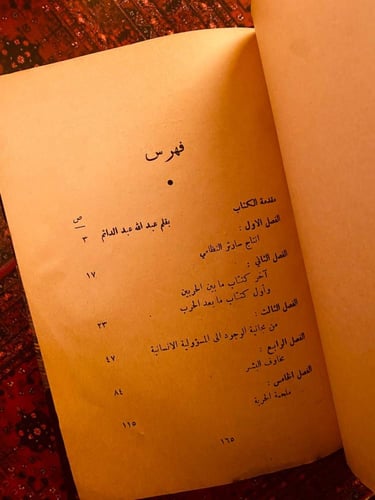 فهرس
ص
مقدمة الكتاب بقلم عبد الله عبد الدائم ٣
الفصل الاول :
انتاج سارتر النظامي ١٧
الفصل الثاني :
آخر كتاب ما بين الحربين
وأول كتاب ما بعد الحرب ٢٣
الفصل الثالث :
من مجانية الوجود الى المسؤولية الانسانية ٤٧
الفصل الرابع :
مخاوف البشر ٨٤
الفصل الخامس :
ملحمة الحرية ١١٥
١٦٥